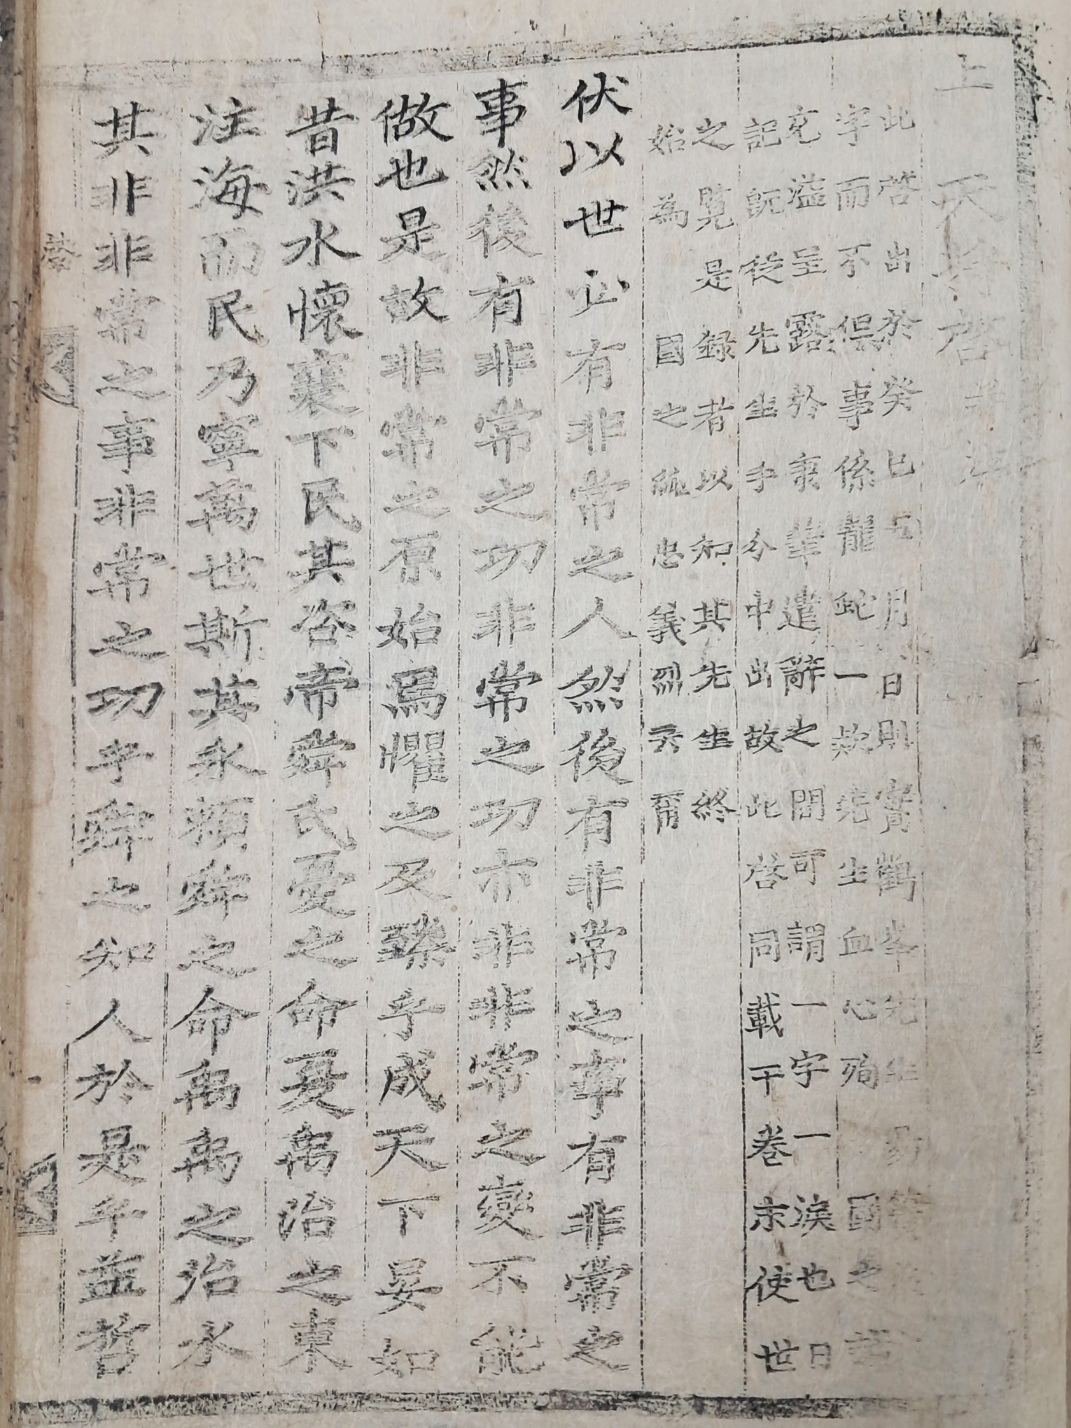 上天將啓
此啓出於癸巳 月 日則實鶴峯先生
字而不俱事係龍蛇一款先生血心殉國之
充溢呈露於衷 遣辭之間可謂一字一淚也日
記旣從先生手分中出故此啓同載于卷末使世
之覽是錄者以知其先生終
始為國之純忠義烈云爾
伏以世必有非常之人然後有非常之事有非常之
事然後有非常之功非常之功亦非非常之變不能
做也是故非常之原始焉懼之及臻乎成天下晏如
昔洪水懷襄下民其咨帝舜氏憂之命夏禹治之東
注海而民乃寧萬世斯其永賴舜之命禹禹之治水
其非非常之事非常之功乎舜之知人於是乎益哲
啓